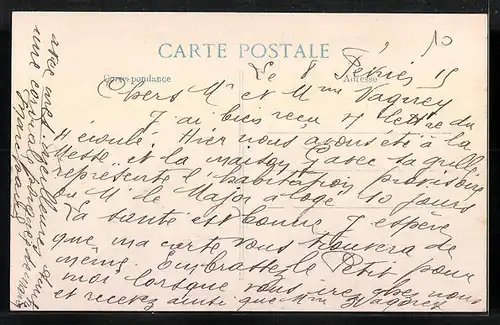 CARTE POSTALE
Correspondance
Adresse
10
Le 8 Février 15
Chers Mr et Mme Vagney
J'ai bien reçu v/ lettre du
écoulé. Hier nous avons été à la
Messe et la maison avec sa grille
représente l'habitation provisoire
ou M le Major a logé 10 jours
La santé est bonne J'espère
que ma carte vous trouvera de
même. Embrassez le Petit pour
moi lorsque vous chez nous
et recevez ainsi que Mme Vagney
avec mes meilleures
une cordiale poignée de main